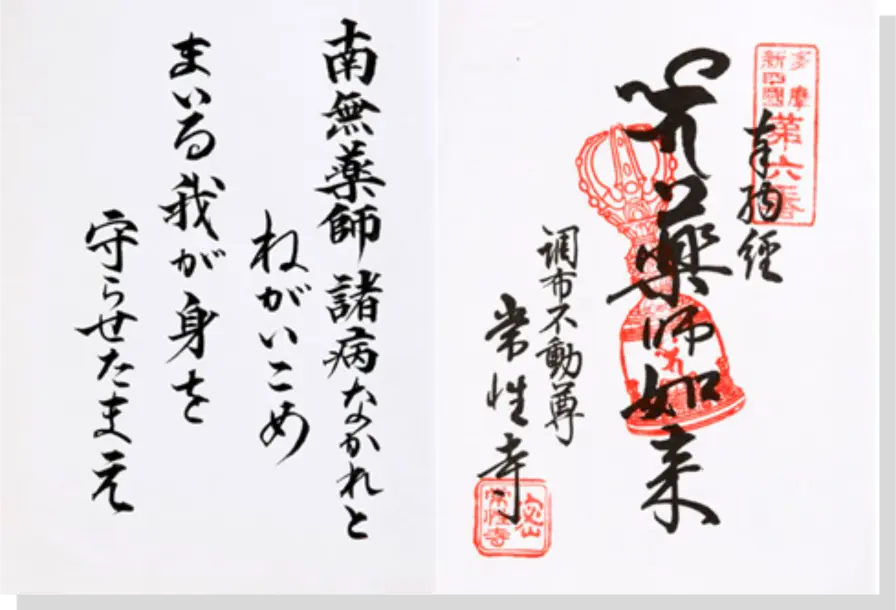 多摩
新四國
第六番
奉納經
藥師如来
調布不動尊
常性寺
常性寺
南無薬師 諸病なかれと
ねがいこめ
まいる我が身を
守らせたまえ